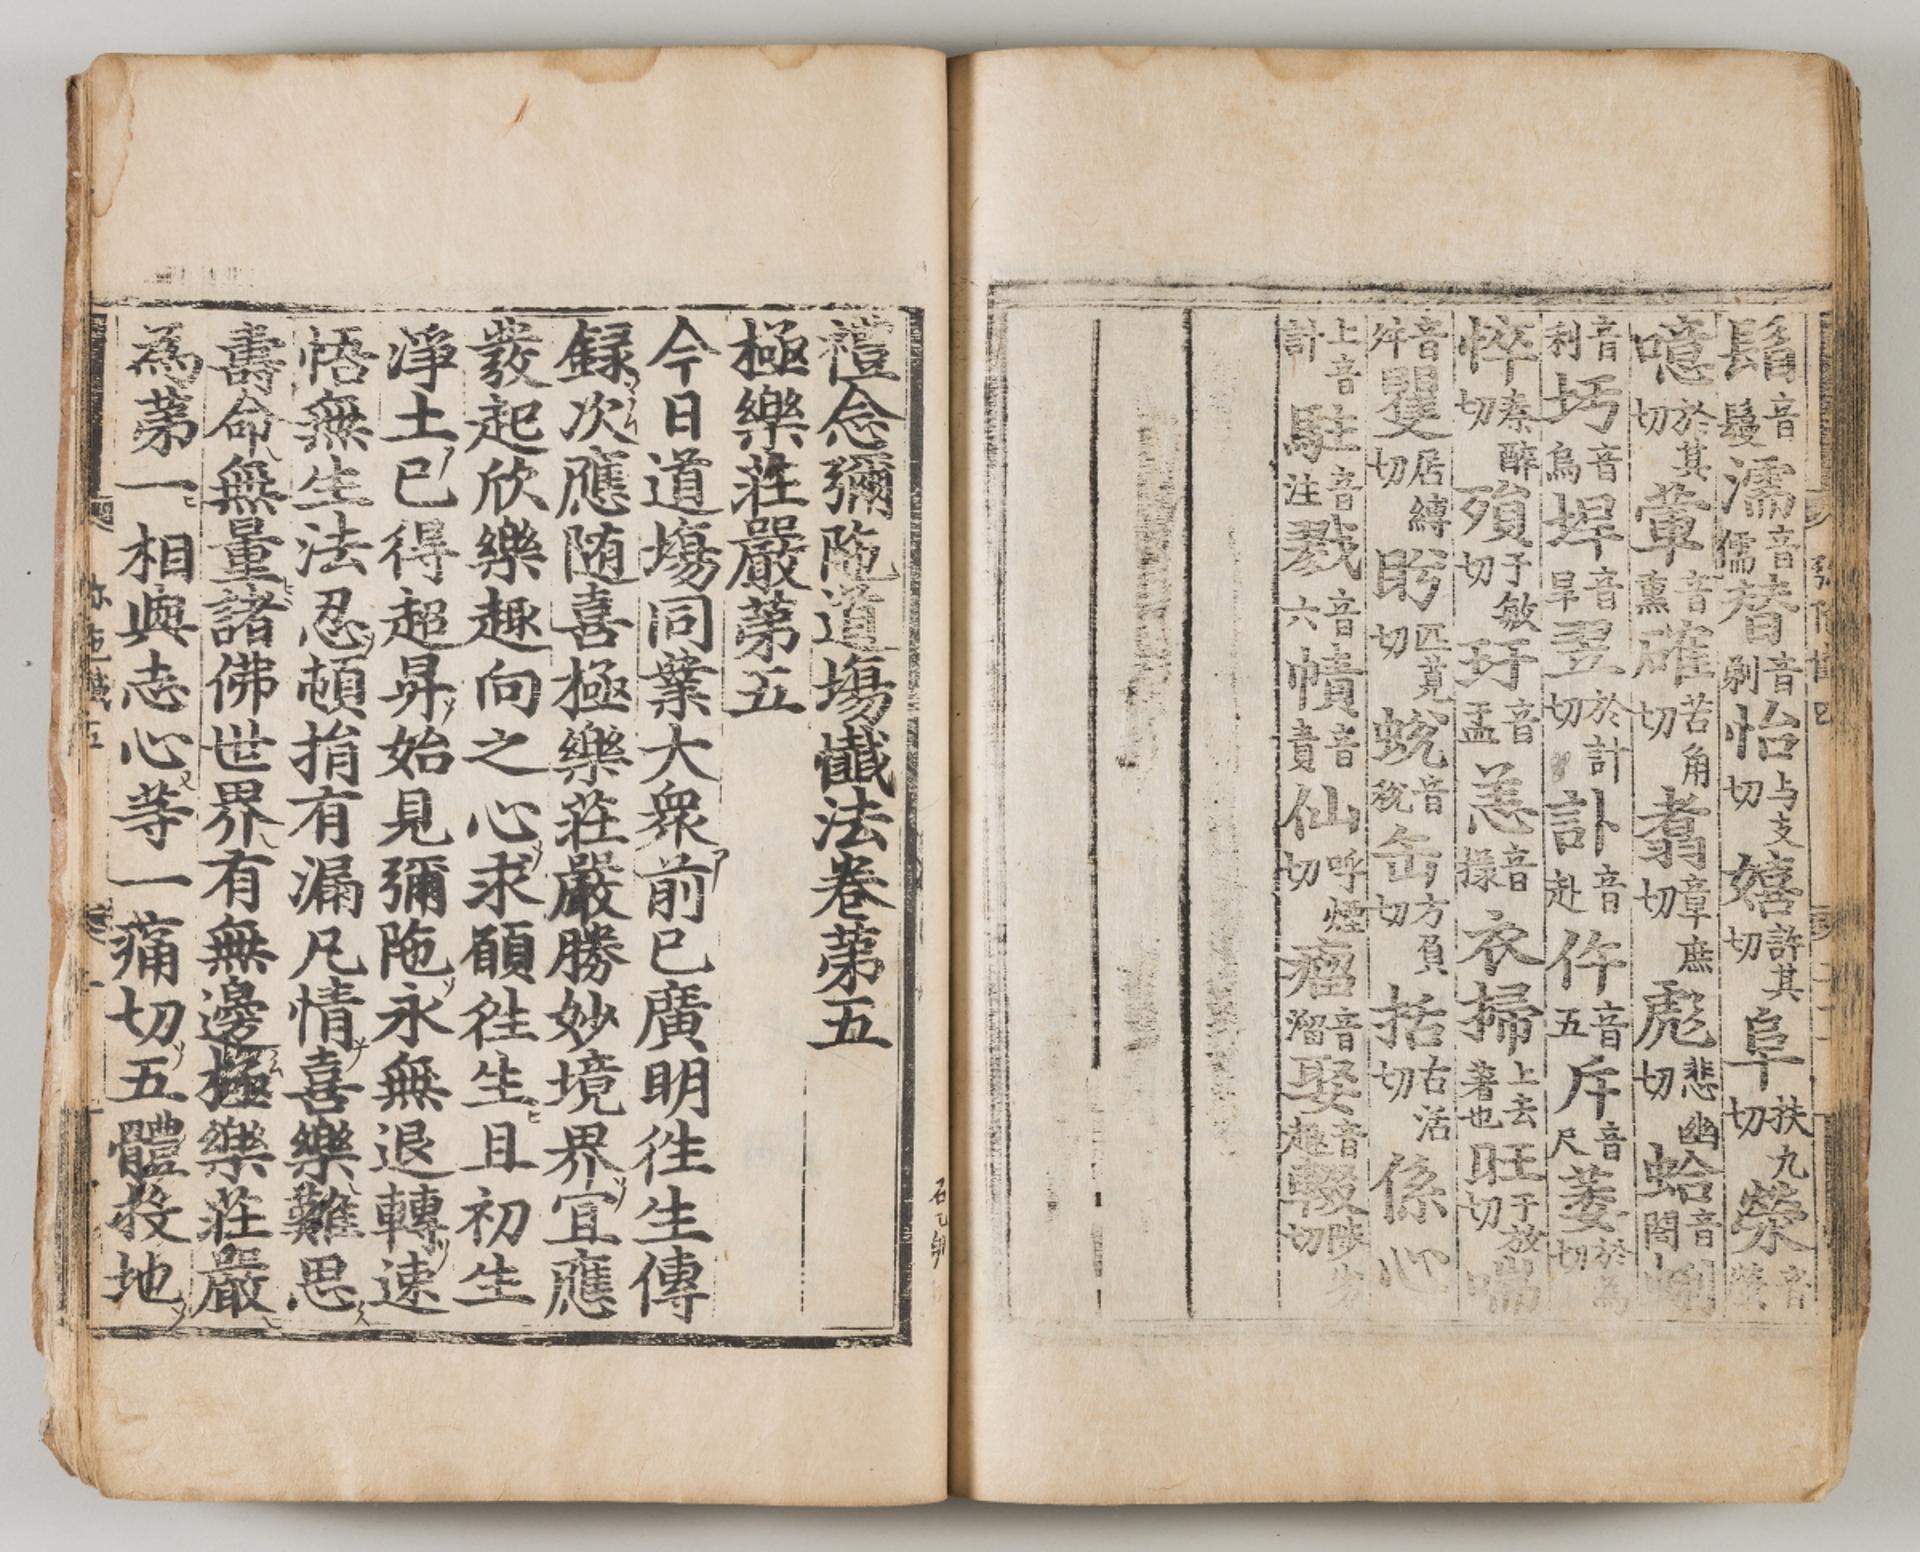 鬚音鬘濡音儒替音剃怡与支切嬉許其切阜扶九切縈音
噫於其切葷音熏確苦角切翥章庶切彪悲幽切蛤音閤
利音圬音烏垾音旱翌於計切訃音赴仵音五斥音尺萎於為切
悴秦醉切殞于敏切玗音盂恙音㨾衣掃上去著也旺于放切喘
音舛矍居縛切眄匹莧切蛻音稅缶方負切括古活切係心
上音計駐音注戮音六幘音責仙呼煙切瘤音溜娶音趣輟陟劣切
禮念彌陁道塲懺法卷第五
極樂莊嚴第五
今日道塲同業大衆前已廣明徃生傳
録次應随喜極樂莊嚴勝妙境界冝應
發起欣樂趣向之心求願徃生且初生
淨土已得超昇始見彌陁永無退轉速
悟無生法忍頓捐有漏凡情喜樂難思
壽命無量諸佛世界有無邊極樂莊嚴
為第一相與志心等一痛切五體投地